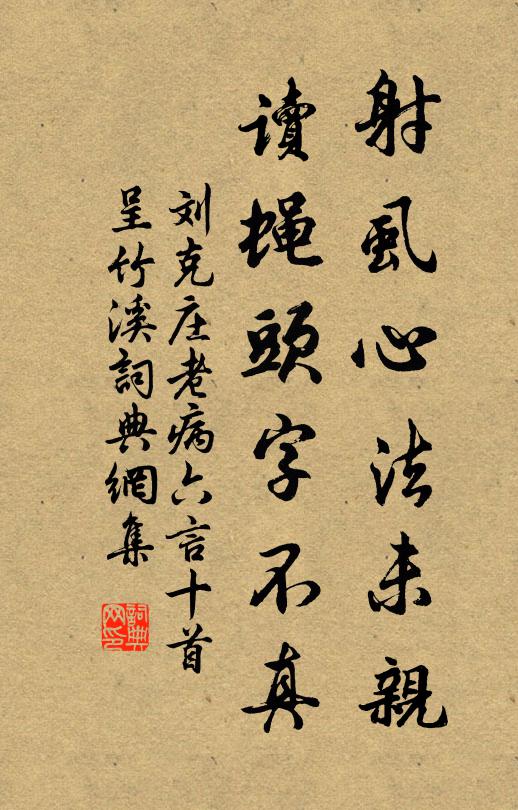 射虱心法未親
讀蝇頭字不真
刘克庄老病六言十首
呈竹溪詞典網集
詞典网印